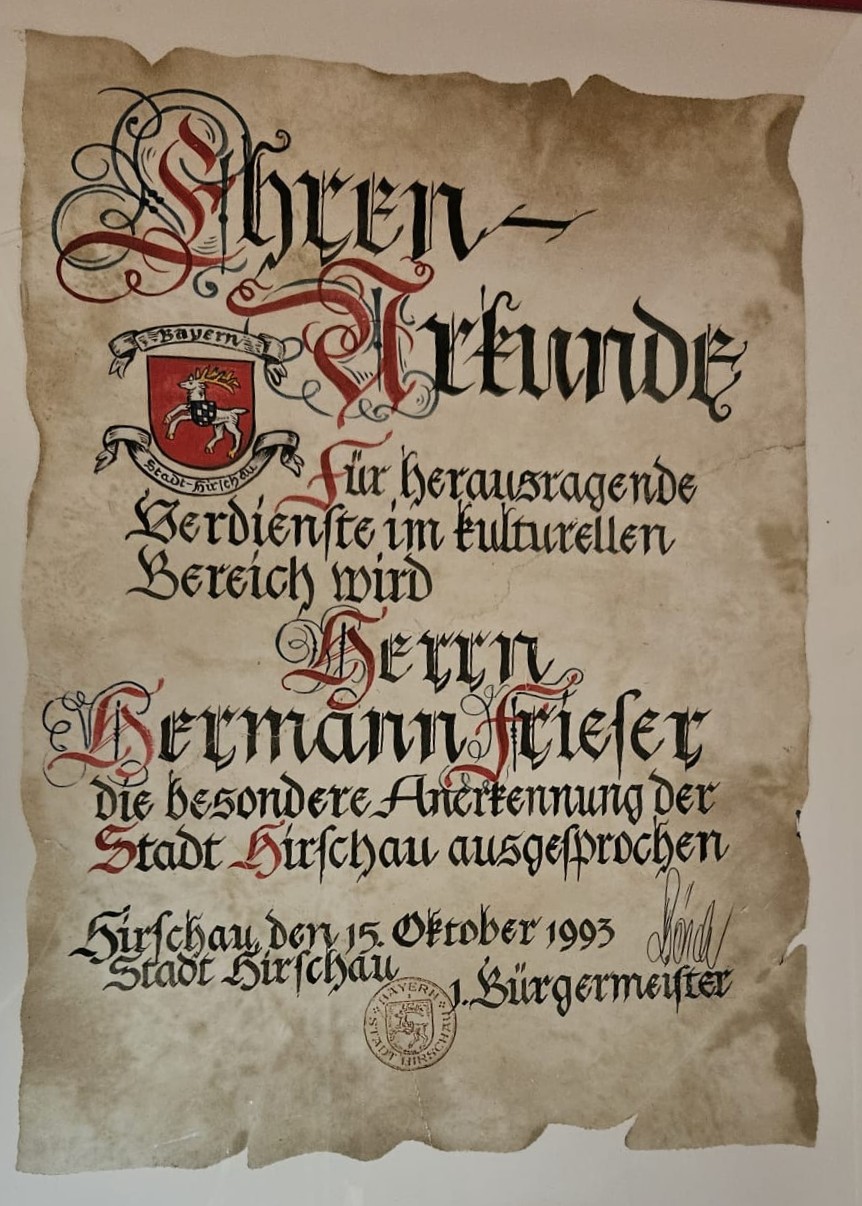 Ehren-
Urkunde
Bayern
Stadt-Hirschau
Für herausragende
Verdienste im kulturellen
Bereich wird
Herrn
Hermann Frieser
die besondere Anerkennung der
Stadt Hirschau ausgesprochen
Hirschau, den 15. Oktober 1993
Stadt Hirschau
1. Bürgermeister
BAYERN
STADT HIRSCHAU